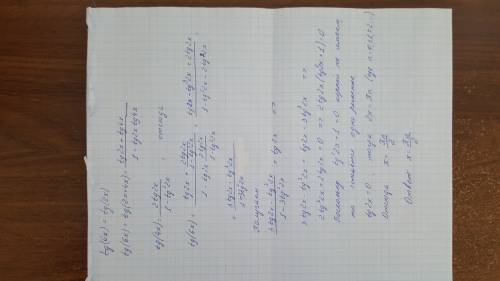 tg(6x) = tg(2x)
tg(6x) = tg(2x+4x) = (tg2x + tg4x)/(1 - tg2x tg4x)
tg(4x) = 2tg2x/(1 - tg²2x), откуда
tg(6x) = (tg2x + 2tg2x/(1 - tg²2x))/(1 - tg2x · 2tg2x/(1 - tg²2x)) = (tg2x - tg³2x + 2tg2x)/(1 - tg²2x - 2tg²2x) =
= (3tg2x - tg³2x)/(1 - 3tg²2x)
Получаем
(3tg2x - tg³2x)/(1 - 3tg²2x) = tg2x =>
3tg2x - tg³2x = tg2x - 3tg³2x =>
2tg³2x + 2tg2x = 0 => 2tg2x(tg²2x + 1) = 0
Поскольку tg²2x + 1 = 0 корней не имеет
то остаётся одно решение
tg2x = 0, тогда 2x = πn (где
Отсюда x = πn/2
Ответ: x = πn/2